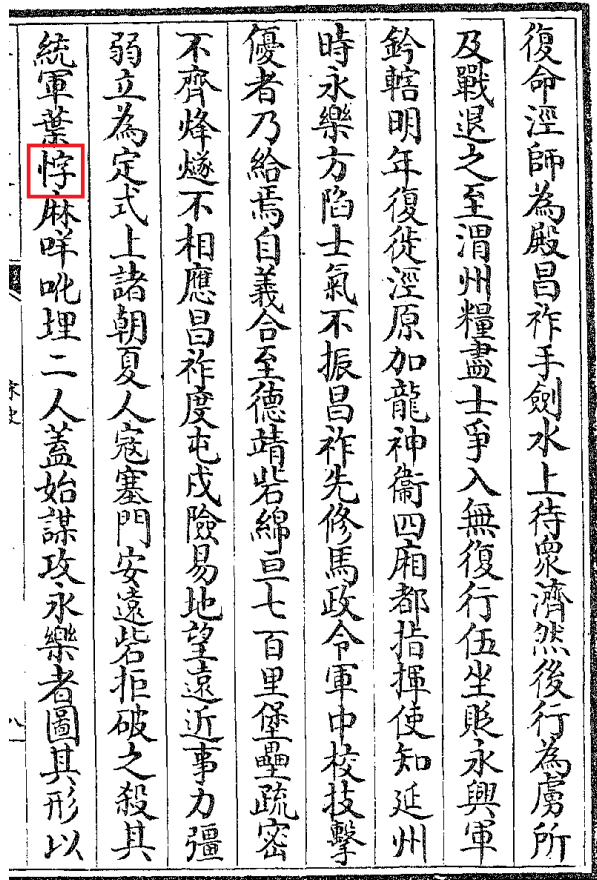 復命涇師為殿昌祚手劍水上待衆濟然後行為虜所
及戰退之至渭州糧盡士爭入無復行伍坐貶永興軍
鈐轄明年復從涇原加龍神衞四廂都指揮使知延州
時永樂方陷士氣不振昌祚先修馬政令軍中校技擊
優者乃給焉自義合至德靖砦綿亘七百里堡壘疏密
不齊烽燧不相應昌祚度屯戍險易地望遠近事力彊
弱立為定式上諸朝夏人寇塞門安遠砦拒破之殺其
統軍葉悖麻咩吪埋二人蓋始謀攻永樂者圖其形以